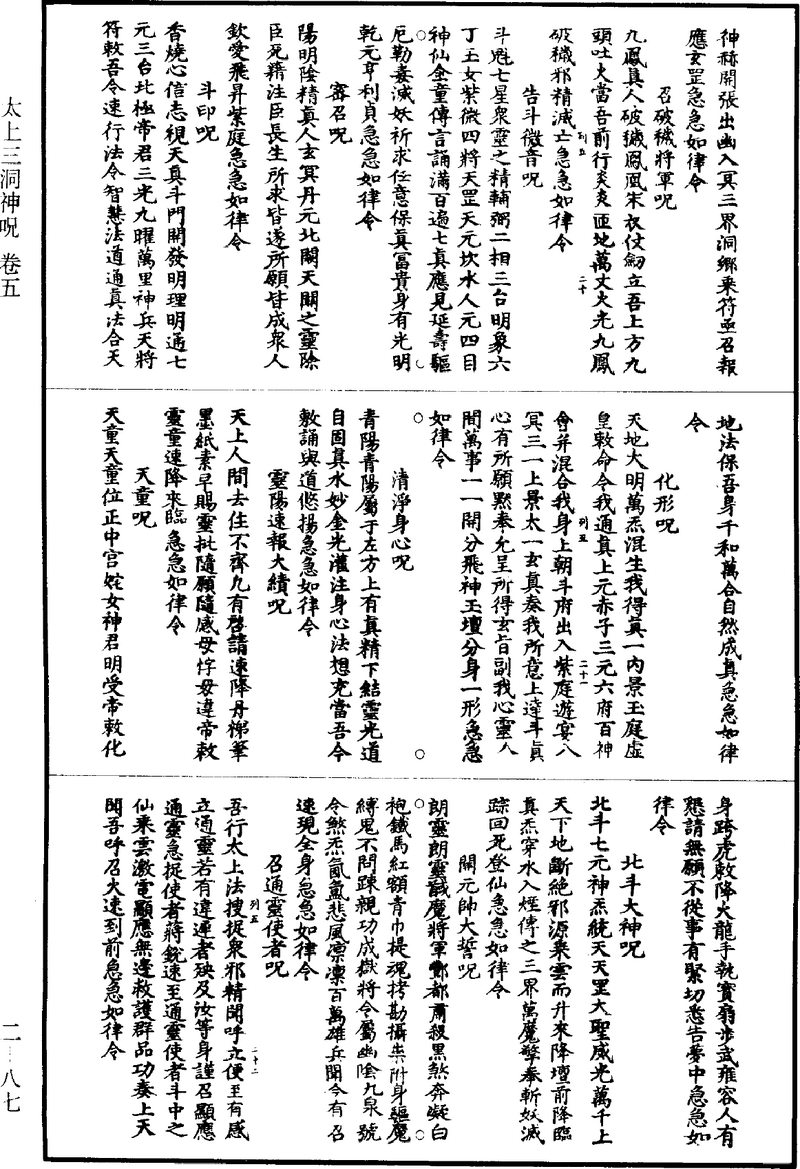 太上三洞神呪 卷五
二—八七
神赫開張出幽入冥三界洞鄉乘符亟召報
應玄罡急急如律令
召破穢將軍呪
九鳳真人破穢鳳凰朱衣仗劒立吾上方九
頭吐火當吾前行炎炎匝地萬丈火光九鳳
破穢邪精滅亡急急如律令
列五
二十
告斗微音呪
斗魁七星衆靈之精輔弼二相三台明象六
丁玉女紫微四將天罡天元坎水人元四目
神仙金童傳言誦滿百遍七真應見延壽驅
厄勒毒滅妖祈求任意保真冨貴身有光明
乾元亨利貞急急如律令
密召呪
陽明陰精真人玄冥丹元北關天關之靈除
臣死籍注臣長生所求皆遂所願皆成衆人
欽愛飛昇紫庭急急如律令
斗印呪
香燒心信志視天真斗門開發明理明通七
元三台北極帝君三光九曜萬里神兵天將
符敕吾令速行法令智慧法道通真法合天
地法保吾身千和萬合自然成真急急如律
令
化形呪
天地大明萬炁混生我得真一内景玉庭虛
皇敕命令我通真上元赤子三元六府百神
會并混合我身上朝斗府出入紫庭遊宴八
列五
二十一
冥三一上景太一玄真奏我所意上達斗真
心有所願黙奉允呈所得玄旨副我心靈人
間萬事一一開分飛神玉壇分身一形急急
如律令
清淨身心呪
青陽青陽屬于左方上有真精下結靈光道
自固真水妙金光灌注身心法想充當吾令
敷誦與道悠揚急急如律令
靈陽速報大績呪
天上人間去住不齊凡有啓請速降丹梯筆
墨紙素早賜靈批隨願隨感毋悖毋違帝敕
靈童速降來臨急急如律令
天童呪
天童天童位正中宫姹女神君明受帝敕化
身跨虎敕降火龍手執寳扇步武雍容人有
懇請無願不從事有緊切悉告夢中急急如
律令
北斗大神呪
北斗七元神炁統天天罡大聖威光萬千上
天下地斷絶邪源乘雲而升來降壇前降臨
真炁穿水入煙傳之三界萬魔擎拳斬妖滅
踪回死登仙急急如律令
關元帥大誓呪
朗靈朗靈馘魔將軍酆都肅殺黑煞奔凝白
袍鐵馬紅額青巾提魂拷勘攝祟附身驅魔
縛鬼不問踈親功成獄將令屬幽陰九泉號
令煞炁氤氲悲風凛凛百萬雄兵聞今有召
速現全身急急如律令
列五
二十二
召通靈使者呪
吾行太上法搜捉衆邪精聞呼立便至有感
立通靈若有違逆者殃及汝等身謹召顯應
通靈急捉使者蔣銳速至通靈使者斗中之
仙乘雲激電顯應無邊救護群品功奏上天
聞吾呼召火速到前急急如律令